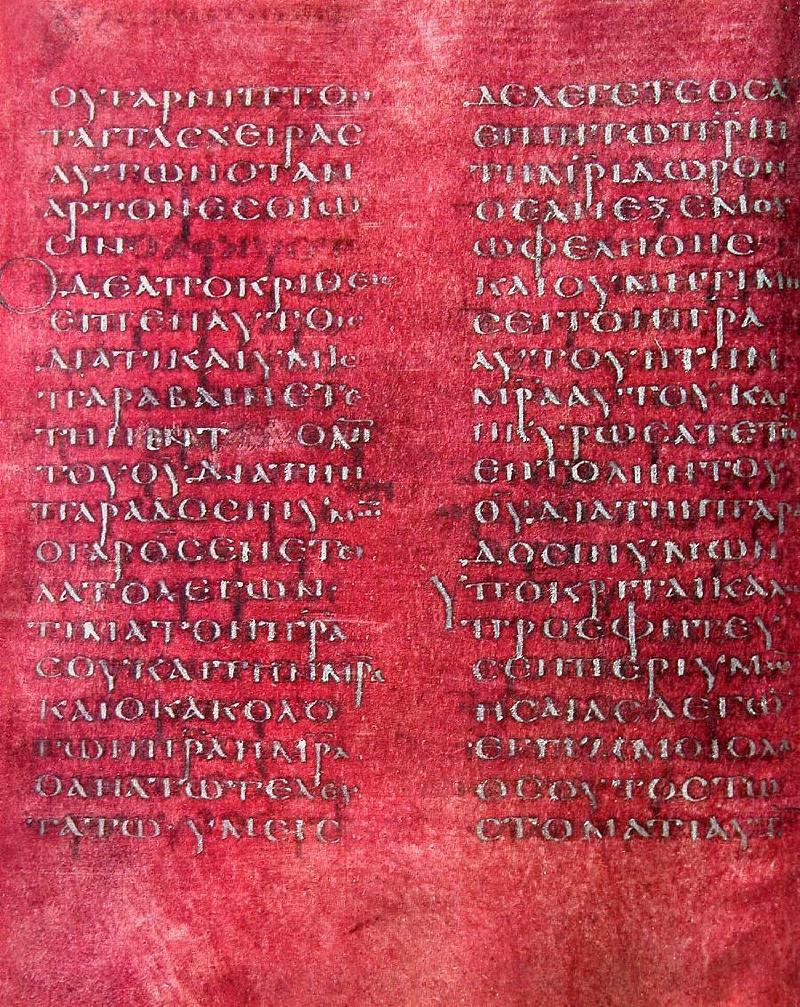 ΟΥΓΑΡΝΙΠΤΟΝ
ΤΑΙΤΑϹΧΕΙΡΑϹ
ΑΥΤΩΝΟΤΑΝ
ΑΡΤΟΝΕϹΘΙΩ
ϹΙΝ
ΟΔΕΑΠΟΚΡΙΘΕΙϹ
ΕΙΠΕΝΑΥΤΟΙϹ
ΔΙΑΤΙΚΑΙΥΜΙϹ
ΠΑΡΑΒΑΙΝΕΤΕ
ΤΗΝΕΝΤΟΛΗΝ
ΤΟΥΘΥΔΙΑΤΗΝ
ΠΑΡΑΔΟϹΙΝΥΜΩΝ
ΟΓΑΡΘϹΕΝΕΤΕΙ
ΛΑΤΟΛΕΓΩΝ
ΤΙΜΑΤΟΝΠ̅Ρ̅Α̅
ϹΟΥΚΑΙΤΗΝΜ̅Ρ̅Α̅
ΚΑΙΟΚΑΚΟΛΟ
ΓΩΝΠ̅Ρ̅Α̅ΗΜ̅Ρ̅Α̅
ΘΑΝΑΤΩΤΕΛΕΥ
ΤΑΤΩ·ΥΜΕΙϹ
ΔΕΛΕΓΕΤΕΟϹΑ
ΕΙΠΗΤΩΠ̅Ρ̅Ι̅Η
ΤΗΜ̅Ρ̅Ι̅ΔΩΡΟΝ
ΟΕΑΝΕΞΕΜΟΥ
ΩΦΕΛΗΘΗϹ
ΚΑΙΟΥΜΗΤΙΜΗ
ϹΕΙΤΟΝΠ̅Ρ̅Α̅
ΑΥΤΟΥΗΤΗΝ
Μ̅Ρ̅Α̅ΑΥΤΟΥΚΑΙ
ΗΚΥΡΩϹΑΤΕΤΗ
ΕΝΤΟΛΗΝΤΟΥ
Θ̅Υ̅ΔΙΑΤΗΝΠΑΡΑ
ΔΟϹΙΝΥΜΩΝ
ΥΠΟΚΡΙΤΑΙΚΑΛΩ
ΠΡΟΕΦΗΤΕΥ
ϹΕΝΠΕΡΙΥΜΩΝ
ΗϹΑΙΑϹΛΕΓΩ
ΕΓΓΙΖΕΙΜΟΙΟΛΑ
ΟϹΟΥΤΟϹΤΩ
ϹΤΟΜΑΤΙΑΥΤ